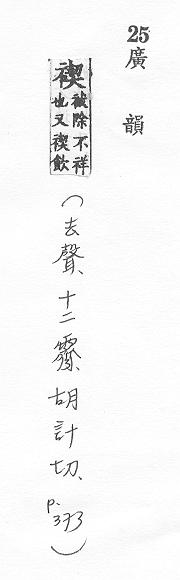 25
廣韻
禊
祓除不祥
也又禊飲
(去聲、十二霽胡計切、p.373)